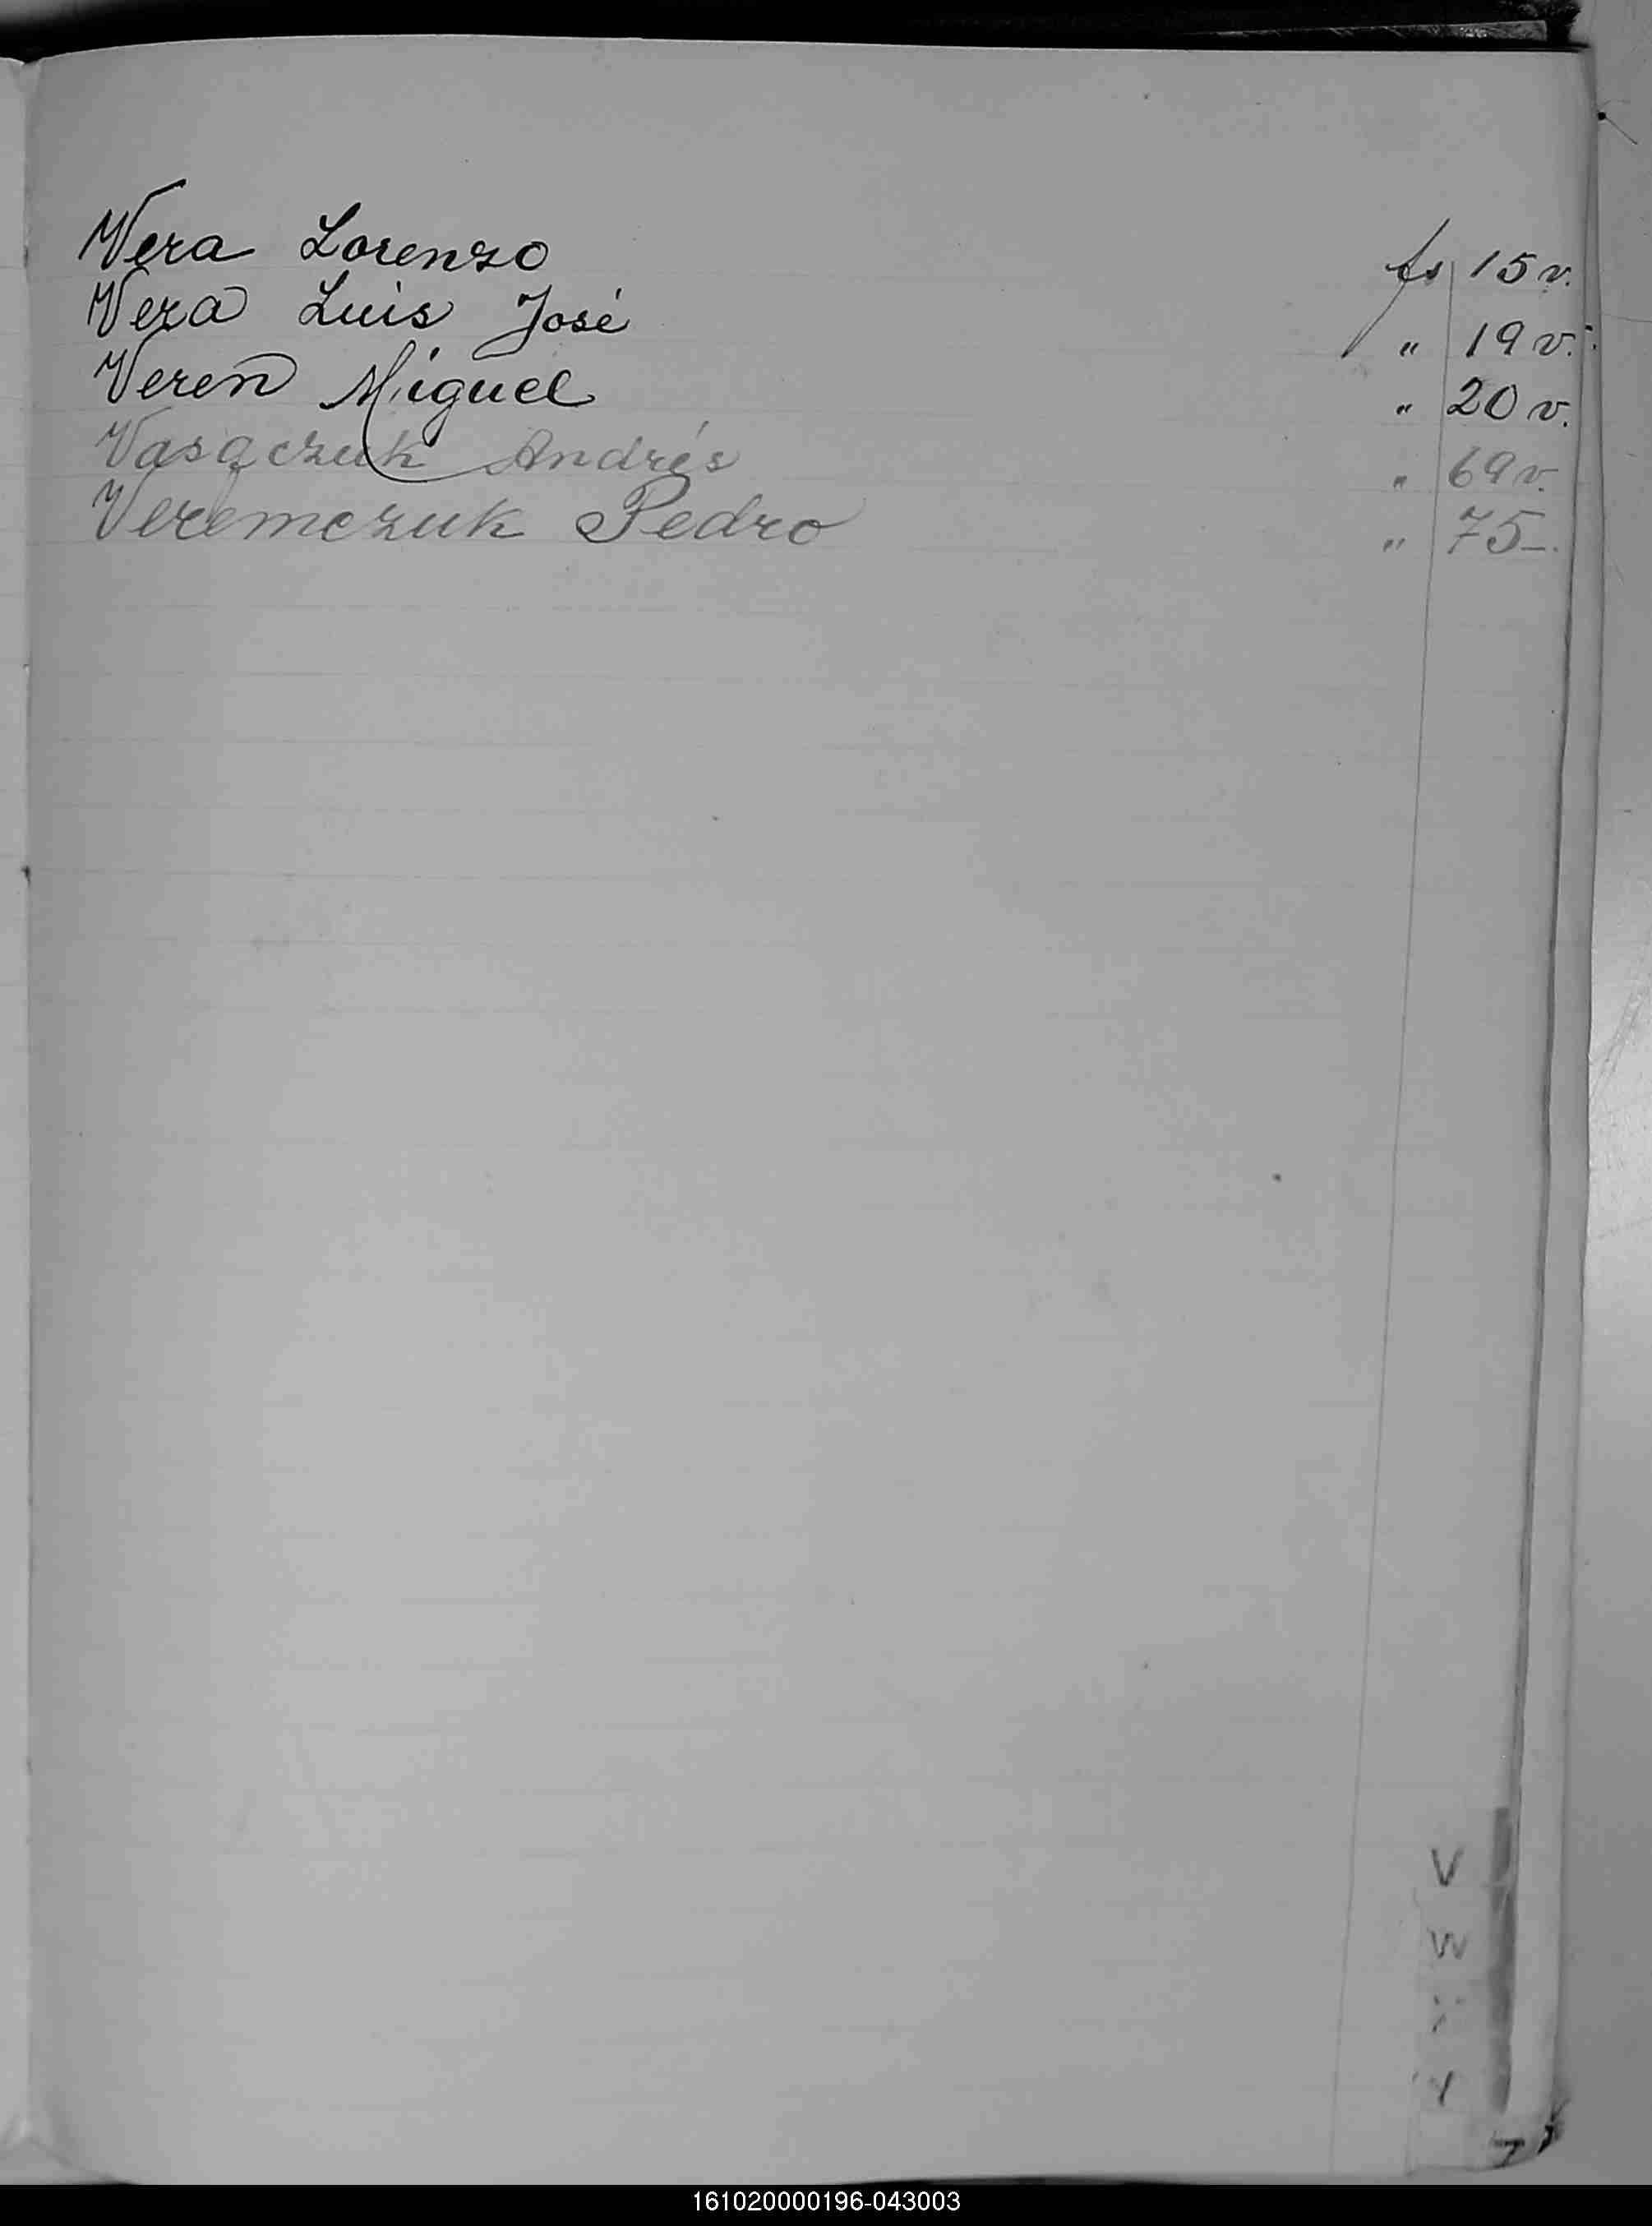 Vera Lorenzo fs 15 v.
Vera Luis José " 19 v.
Veren Miguel " 20 v.
Vasaczuk Andrés " 69 v.
Veremczuk Pedro " 75_.
V
W
X
Y
Z
161020000196-043003